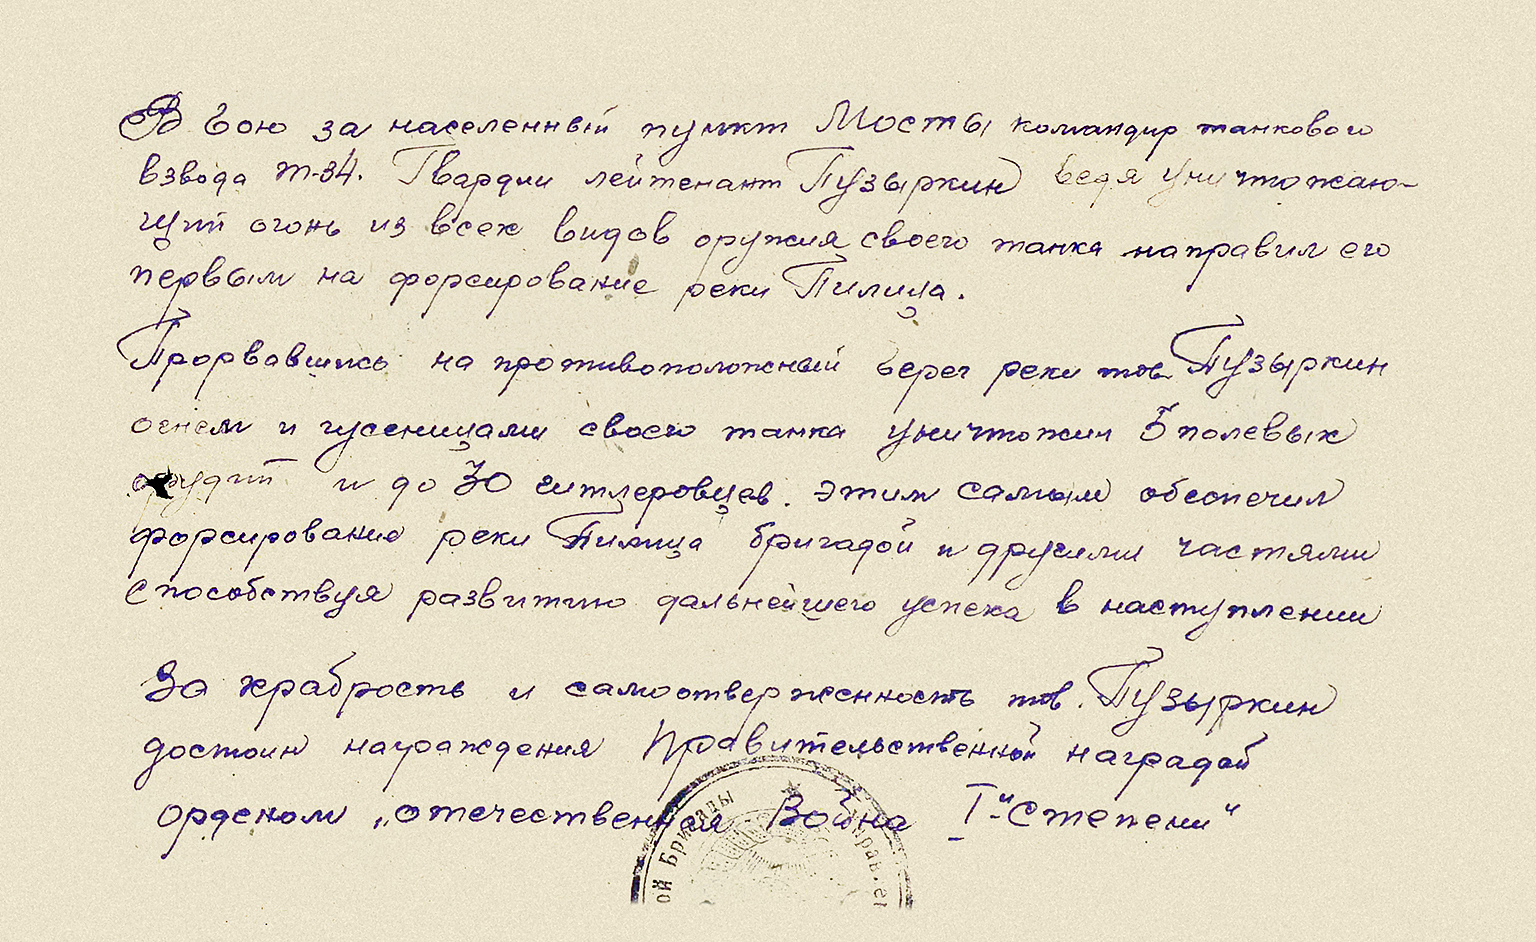 В бою за населенный пункт Мосты командир танкового
взвода Т-34. Гвардии лейтенант Пузыркин ведя уничтожаю-
щий огонь из всех видов оружия своего танка направил его
первым на форсирование реки Пилица.
Прорвавшись на противоположный берег реки тов Пузыркин
огнем и гусеницами своего танка уничтожил 5 полевых
орудий и до 30 гитлеровцев. этим самым обеспечил
форсирование реки Пилица бригадой и другими частями
способствуя развитию дальнейшего успеха в наступлении
За храбрость и самоотверженность тов. Пузыркин
достоин награждения Правительственной наградой
орденом „отечественная Война I-"Степени"
ой Бригады